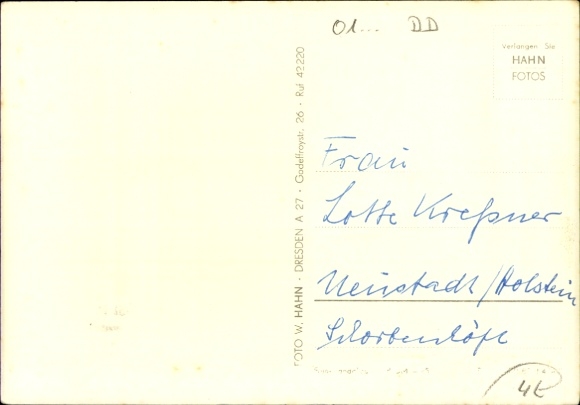 01... DD
Verlangen Sie
HAHN
FOTOS
FOTO W. HAHN · DRESDEN A 27 · Godeffroystr. 26 · Ruf 42220
Frau
Lotte Kreßner
Neustadt/Holstein
4E